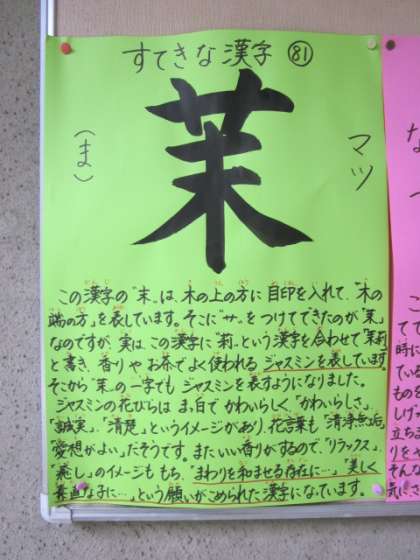 すてきな漢字 81
茉
マツ
（ま）
この漢字の"末"は、木の上の方に目印を入れて、"木の
端の方"を表しています。そこに"サ"をつけてできたのが「茉」
なのですが、実は、この漢字に"莉"という漢字を合わせて「茉莉」
と書き、香りやお茶でよく使われるジャスミンを表しています。
そこから「茉」の一字でもジャスミンを表すようになりました。
ジャスミンの花びらはまっ白でかわいらしく「かわいらしさ」、
「誠実」、「清楚」というイメージがあり、花言葉も「清浄無垢」
「愛想がよい」だそうです。またいい香りがするので、「リラックス」、
「癒し」のイメージももち、「まわりを和ませる存在に…」、「美しく
素直な子に…」という願いがこめられた漢字になっています。
な
つ
こ
て
時に
ている
ものを
しげ
立ちま
りをャ
そんな
気にさ